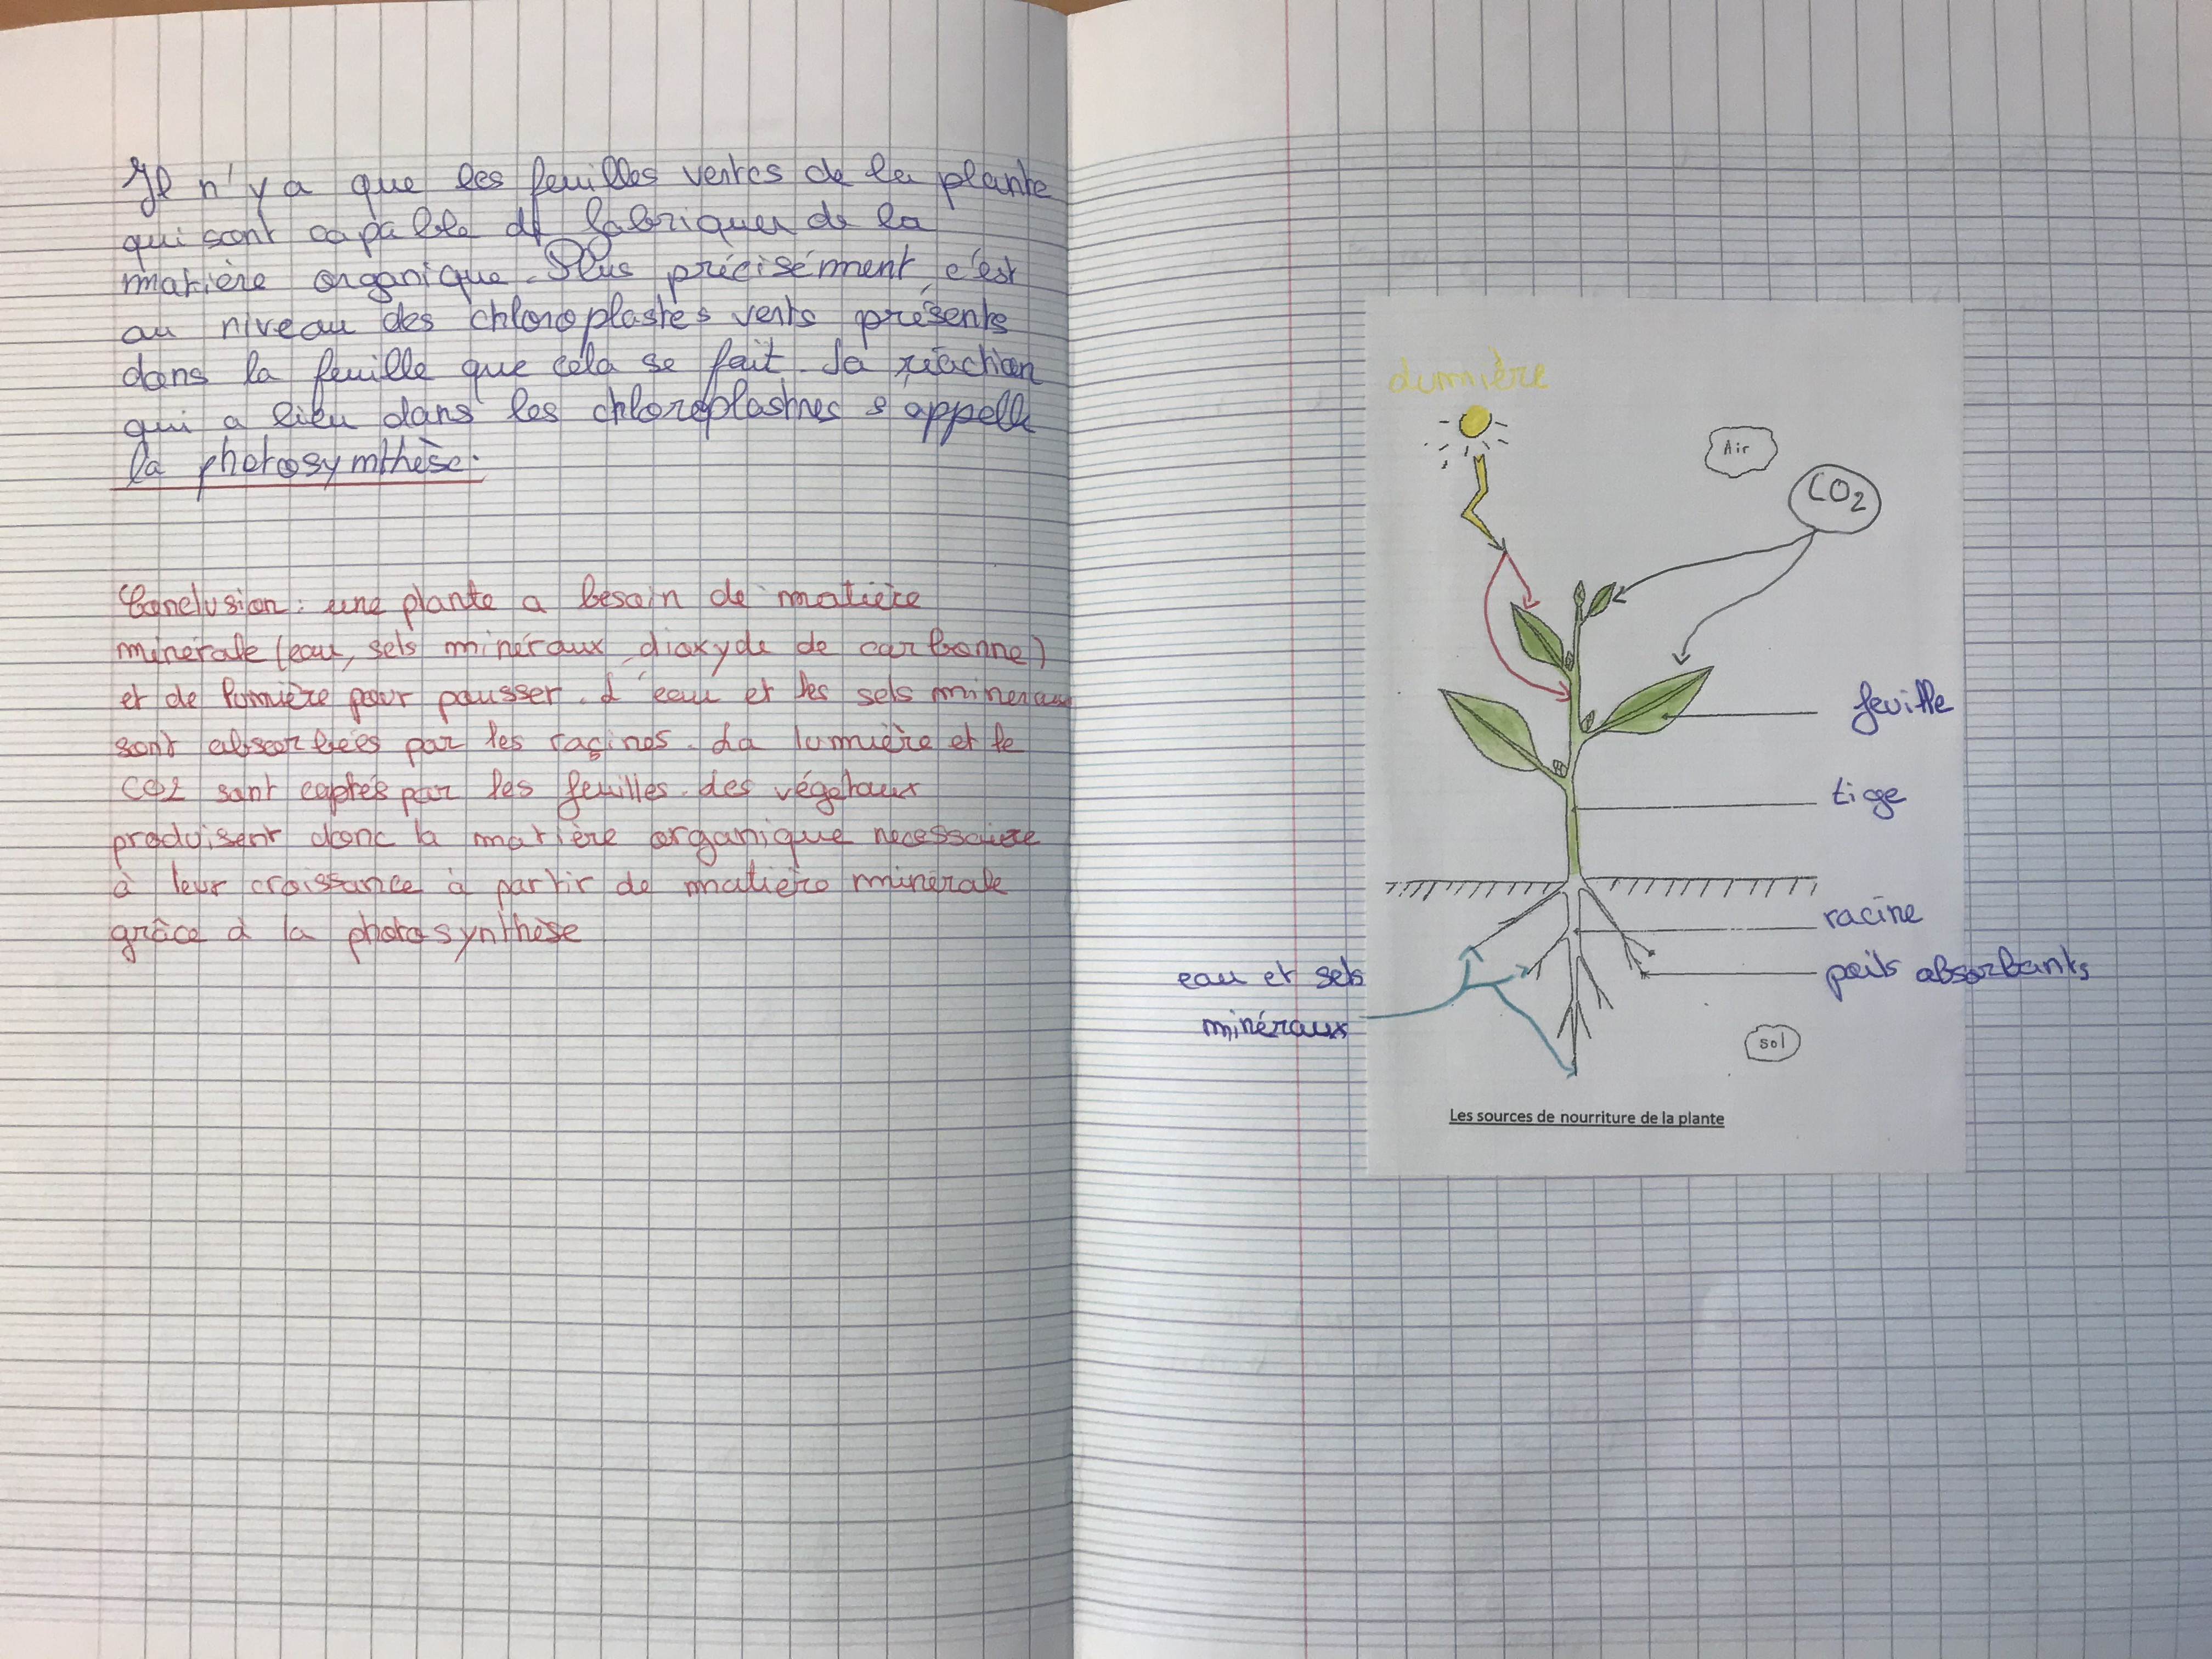 Il n'y a que les feuilles vertes de la plante
qui sont capable de fabriquer de la
matière organique. Plus précisément, c'est
au niveau des chloroplastes verts présents
dans la feuille que cela se fait. La réaction
qui a lieu dans les chloroplastnes s'appelle
la photosymthèse.
Conclusion : une plante a besoin de matière
minérale (eau, sels minéraux, dioxyde de carbonne)
et de lumière pour pousser. L'eau et les sels mineraux
sont absorbées par les racines. La lumière et le
CO2 sont captés par les feuilles. Les végétaux
produisent donc la matière organique necessaire
à leur croissance à partir de matière minérale
grâce à la photosynthèse
Lumière
Air
CO2
feuille
tige
racine
poils absorbants
eau et sels
minéraux
sol
Les sources de nourriture de la plante